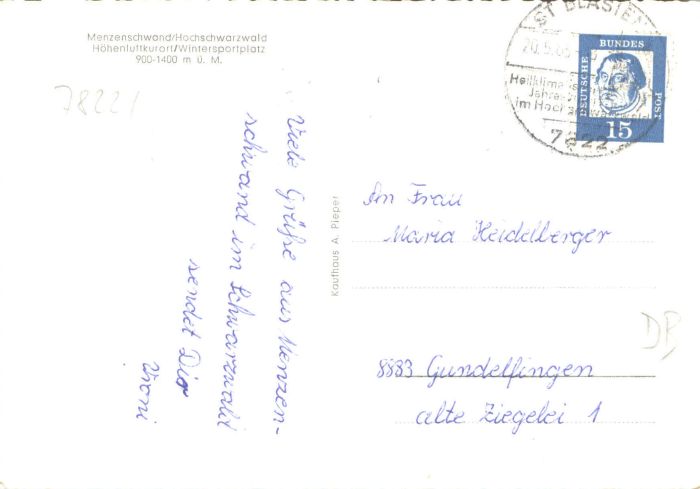 Menzenschwand/Hochschwarzwald
Höhenluftkurort/Wintersportplatz
900-1400 m ü. M.
78221
Viele Grüße aus Menzen-
schwand im Schwarzwald
sendet Dir
Vroni
Kaufhaus A. Pieper
ST BLASIEN
20.5.
Heilklima
Jahres
im Hoch
7822
DEUTSCHE BUNDES POST
15
An Frau
Maria Heidelberger
8883 Gundelfingen
alte Ziegelei 1
DP